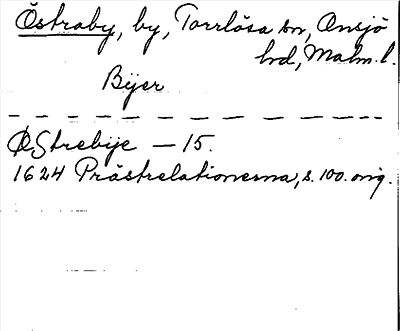 Östraby, by, Torrlösa sn, Onsjö
hd, Malm. l.
Byer
Østrebye — 15.
1624 Prästrelationerna, s. 100. orig.